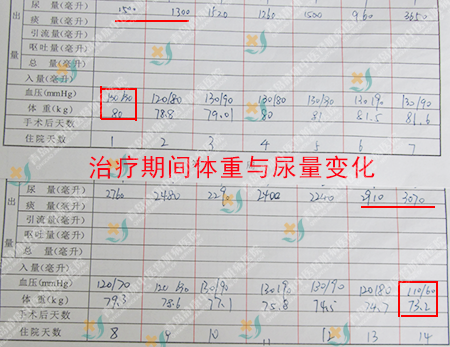 尿 量(毫升) 1500 1300 1520 1260 1500 960 3650
出 痰 量(毫升)
引流量(毫升)
量 呕吐量(毫升)
总 量(毫升)
入量(毫升)
血压(mmHg) 120/80 130/90 130/80 130/90 130/90 130/90
体 重(kg) 80 78.8 79.0 80 81 81.5 81.6
手术后天数
住院天数 1 2 3 4 5 6 7
治疗期间体重与尿量变化
尿 量(毫升) 2760 2480 2290 2400 2240 2910 3070
出 痰 量(毫升)
引流量(毫升)
量 呕吐量(毫升)
总 量(毫升)
入量(毫升)
血压(mmHg) 120/70 120/90 130/90 130/90 130/90 120/80 110/60
体 重(kg) 79.3 78.6 77.1 75.8 74.5 74.7 73.2
手术后天数
住院天数 8 9 10 12 13 14